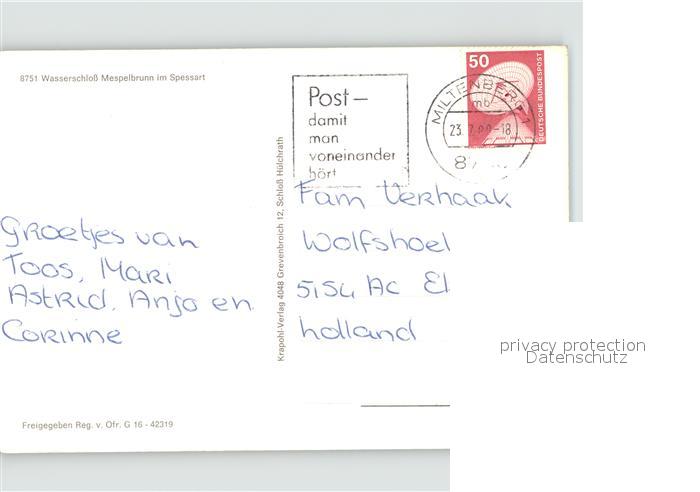 8751 Wasserschloß Mespelbrunn im Spessart
Post –
damit
man
voneinander
hört
50
DEUTSCHE BUNDESPOST
MILTENBERG 1
mb
Krapohl-Verlag 4048 Grevenbroich 12, Schloß Hülchrath
Groetjes van
Toos, Mari
Astrid, Anja en
Corinne
Fam Verhaak
Wolfshoel
5154 AC El
holland
privacy protection
Datenschutz
Freigegeben Reg. v. Ofr. G 16 - 42319